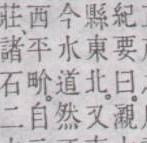 紀要曰。瀙
縣東北。又
今水道然
西平畍。自
莊、諸石二